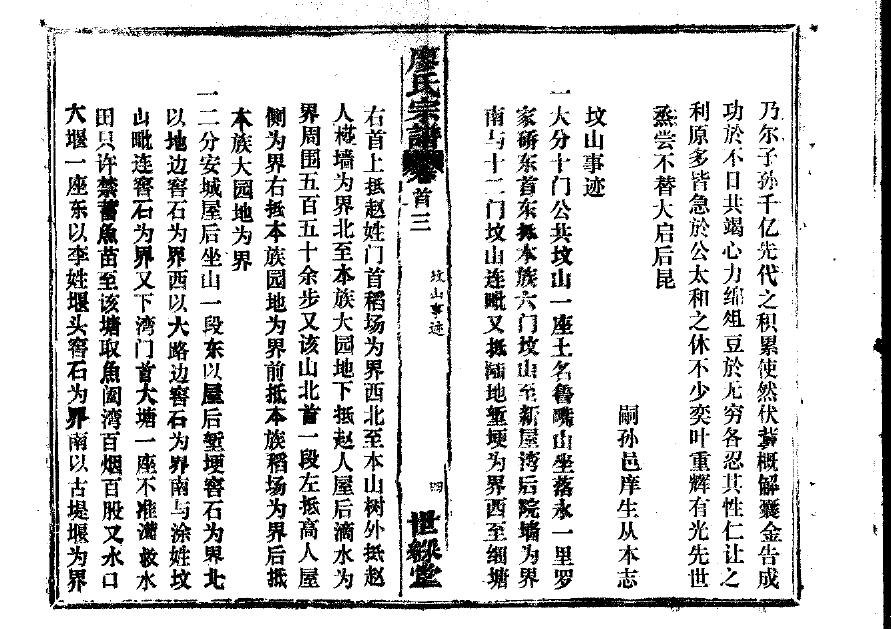 乃尔子孙千亿先代之积累使然伏冀概解囊金告成
功於不日共竭心力绵俎豆於无穷各忍其性仁让之
利原多皆急於公太和之休不少奕叶重辉有光先世
蒸尝不替大启后昆
嗣孙邑庠生从本志
坟山事迹
一大分十门公共坟山一座土名鲁嘴山坐落永一里罗
家硚东首东抵本族六门坟山至新屋湾后院墙为界
南与十二门坟山连毗又抵涵地堑埂为界西至细塘
廖氏宗谱卷首三
坟山事迹
四
世綵堂
右首上抵赵姓门首稻场为界西北至本山树外抵赵
人碰墙为界北至本族大园地下抵赵人屋后滴水为
界周围五百五十余步又该山北首一段左抵高人屋
侧为界右抵本族园地为界前抵本族稻场为界后抵
本族大园地为界
一二分安城屋后坐山一段东以屋后堑埂窖石为界北
以地边窖石为界西以大路边窖石为界南与涂姓坟
山毗连窖石为界又下湾门首大塘一座不准灌救水
田只许禁蓄魚苗至该塘取魚阖湾百烟百股又水口
大堰一座东以李姓堰头窖石为界南以古堤堰为界